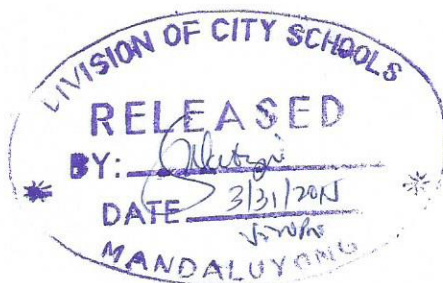 DIVISION OF CITY SCHOOLS
RELEASED
BY:
DATE 3/31/2015
MANDALUYONG